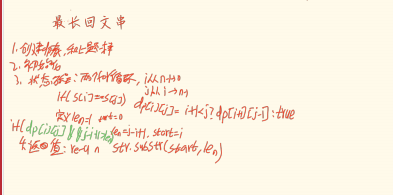 最长回文串
1. 创建
2. 初始化
3. 状态 : 两个for循环, i从n-1→0
j从i→n-1
if(s[i]==s[j]) dp[i][j]= i+1<j? dp[i+1][j-1]:true
定义len=1 start=0
if(dp[i][j] && j-i+1>len) len=j-i+1. start=i
4. 返回值: return str.substr(start, len)